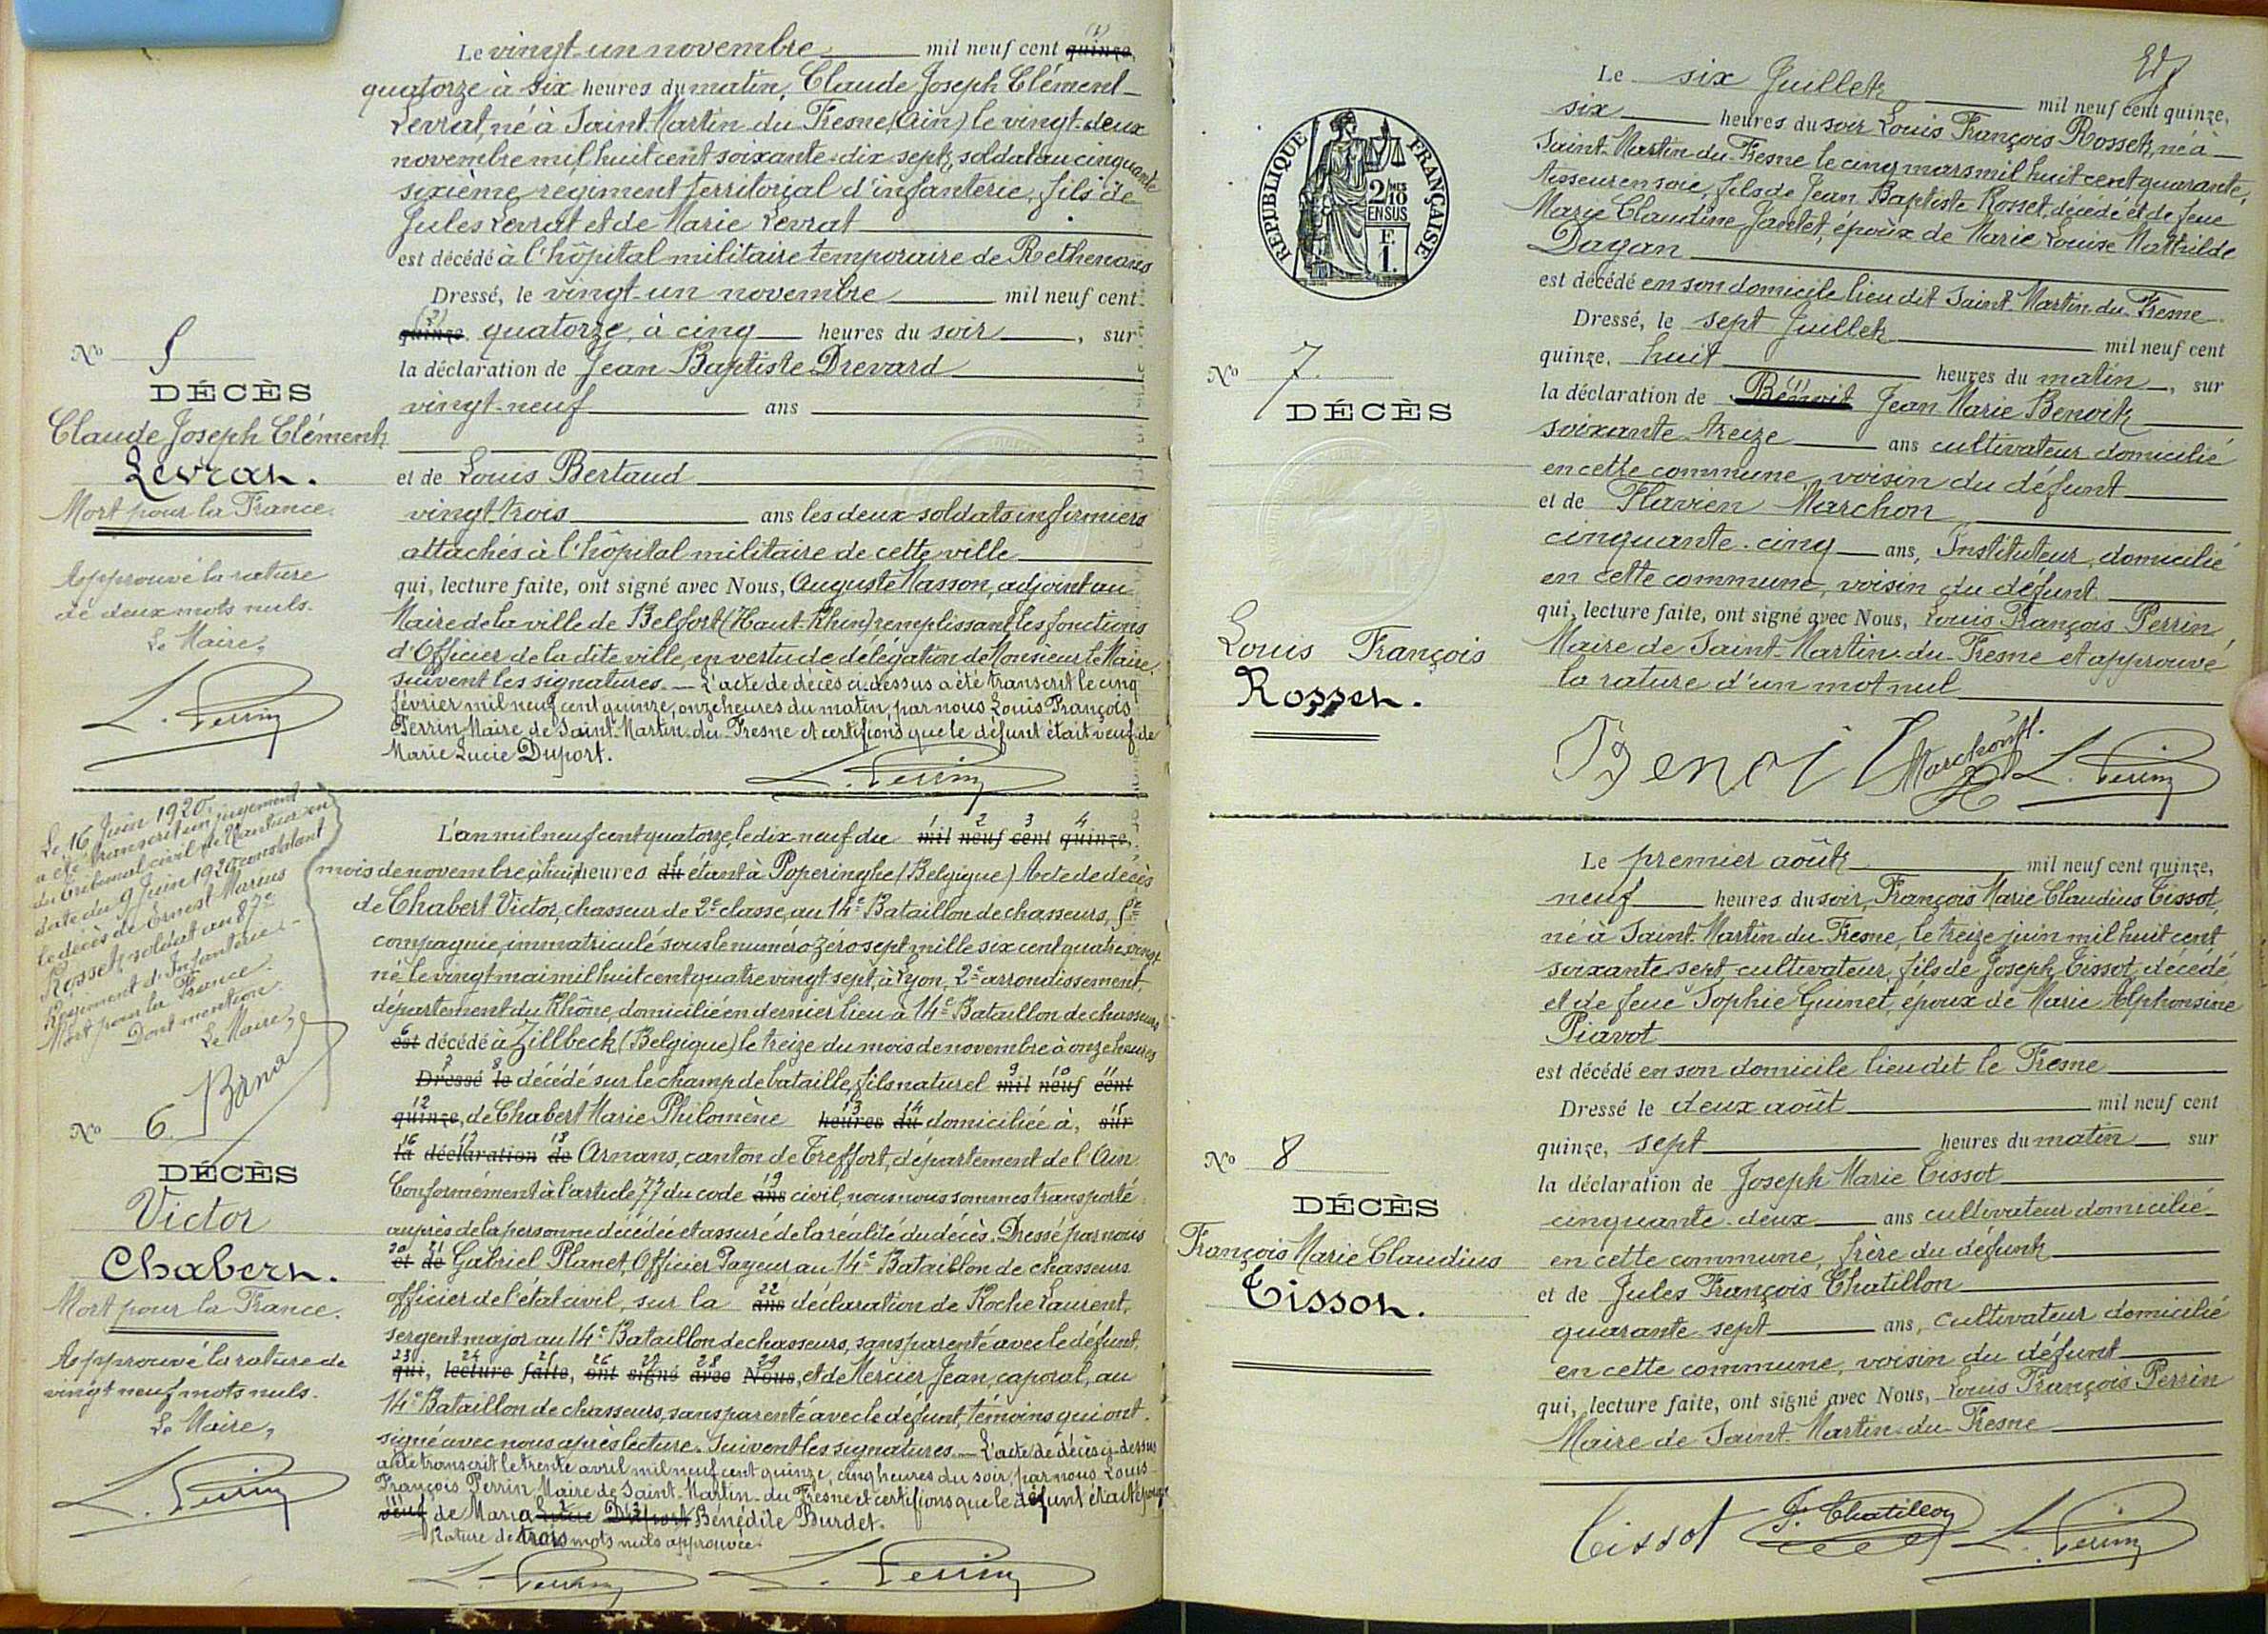 Le vingt-un novembre mil neuf cent quinze, (1)
quatorze à six heures du matin, Claude Joseph Clément
Levrat, né à Saint-Martin-du-Fresne (Ain) le vingt-deux
novembre mil huit cent soixante-dix sept, soldat au cinquante
sixième régiment territorial d'infanterie, fils de
Jules Levrat et de Marie Levrat
est décédé à l'hôpital militaire temporaire de Rethenans
Dressé, le vingt-un novembre mil neuf cent
(2) quinze quatorze, à cinq heures du soir, sur
la déclaration de Jean Baptiste Drevard
vingt-neuf ans
et de Louis Bertaud
vingt trois ans les deux soldats infirmiers
attachés à l'hôpital militaire de cette ville
qui, lecture faite, ont signé avec Nous, Auguste Masson, adjoint au
Maire de la ville de Belfort (Haut-Rhin) remplissant les fonctions
d'Officier de la dite ville, en vertu de délégation de Monsieur le Maire.
suivent les signatures. — L'acte de décès ci-dessus a été transcrit le cinq
février mil neuf cent quinze, onze heures du matin, par nous Louis François
Perrin Maire de Saint-Martin-du-Fresne et certifions que le défunt était veuf de
Marie Lucie Duport.
L. Perrin
No 5
DÉCÈS
Claude Joseph Clément
Levrat.
Mort pour la France.
Approuvé la rature
de deux mots nuls.
Le Maire,
L. Perrin
Le 16 Juin 1920
a été transcrit un jugement
du tribunal civil de Nantua en
date du 9 Juin 1920 constatant
le décès de Ernest Marius
Rosset, soldat au 87e
Régiment d'Infanterie -
Mort pour la France.
Dont mention.
Le Maire,
No 6
DÉCÈS
Victor
Chabert.
Mort pour la France.
Approuvé la rature de
vingt neuf mots nuls.
Le Maire,
L. Perrin
L'an mil neuf cent quatorze, le dix-neuf du mil neuf cent quinze, 1 2 3 4
mois de novembre, à huit heures du étant à Poperinghe (Belgique) Acte de décès
de Chabert Victor, chasseur de 2e classe, au 14e Bataillon de chasseurs, 5e
compagnie, immatriculé sous le numéro zéro sept mille six cent quatre vingt
né le vingt mai mil huit cent quatre vingt sept, à Lyon, 2e arrondissement,
département du Rhône, domicilié en dernier lieu à 14e Bataillon de chasseurs
6 est décédé à Zillbeck (Belgique) le treize du mois de novembre à onze heures
7 8 Dressé le décédé sur le champ de bataille, fils naturel 9 10 11 mil neuf cent
12 quinze, de Chabert Marie Philomène 13 14 heures du domiciliée à, 15 sur
16 17 18 la déclaration de Arnans, canton de Treffort, département de l'Ain.
Conformément à l'article 77 du code 19 ans civil, nous nous sommes transporté
auprès de la personne décédée et assuré de la réalité du décès. Dressé par nous
20 21 et de Gabriel Planet, Officier Payeur au 14e Bataillon de chasseurs
officier de l'état civil, sur la 22 ans déclaration de Roche Laurent,
sergent major au 14e Bataillon de chasseurs, sans parenté avec le défunt,
23 24 25 26 27 28 29 qui, lecture faite, ont signé avec Nous, et de Mercier Jean, caporal, au
14e Bataillon de chasseurs, sans parenté avec le défunt, témoins qui ont
signé avec nous après lecture. Suivent les signatures. — L'acte de décès ci-dessus
a été transcrit le trente avril mil neuf cent quinze, cinq heures du soir, par nous Louis
François Perrin Maire de Saint-Martin-du-Fresne et certifions que le défunt était époux
veuf de Maria Lucie Duport Bénédite Burdet.
Rature de trois mots nuls approuvée.
L. Perrin L. Perrin
RÉPUBLIQUE FRANÇAISE
2/10 MES
EN SUS
F.
1.
No 7
DÉCÈS
Louis François
Rosset.
Le six Juillet mil neuf cent quinze,
six heures du soir Louis François Rosset, né à
Saint-Martin-du-Fresne le cinq mars mil huit cent quarante,
tisseur en soie, fils de Jean Baptiste Rosset, décédé et de feue
Marie Claudine Jantet, époux de Marie Louise Mathilde
Dagan
est décédé en son domicile lieu dit Saint-Martin-du-Fresne
Dressé, le sept Juillet mil neuf cent
quinze, huit heures du matin, sur
la déclaration de Benoit (1) Jean Marie Benoit
soixante treize ans cultivateur domicilié
en cette commune, voisin du défunt
et de Flavien Marchon
cinquante-cinq ans, Instituteur, domicilié
en cette commune, voisin du défunt
qui, lecture faite, ont signé avec Nous, Louis François Perrin
Maire de Saint-Martin-du-Fresne et approuvé
la rature d'un mot nul
Benoit Marchon fl. L. Perrin
No 8
DÉCÈS
François Marie Claudius
Tissot.
Le premier août mil neuf cent quinze,
neuf heures du soir, François Marie Claudius Tissot,
né à Saint-Martin-du-Fresne, le treize juin mil huit cent
soixante sept, cultivateur, fils de Joseph Tissot, décédé
et de feue Sophie Guinet, époux de Marie Alphonsine
Piavot
est décédé en son domicile lieu dit le Fresne
Dressé le deux août mil neuf cent
quinze, sept heures du matin sur
la déclaration de Joseph Marie Tissot
cinquante-deux ans cultivateur domicilié
en cette commune, frère du défunt
et de Jules François Chatillon
quarante sept ans, cultivateur domicilié
en cette commune, voisin du défunt
qui, lecture faite, ont signé avec Nous, Louis François Perrin
Maire de Saint-Martin-du-Fresne
Tissot J. Chatillon L. Perrin